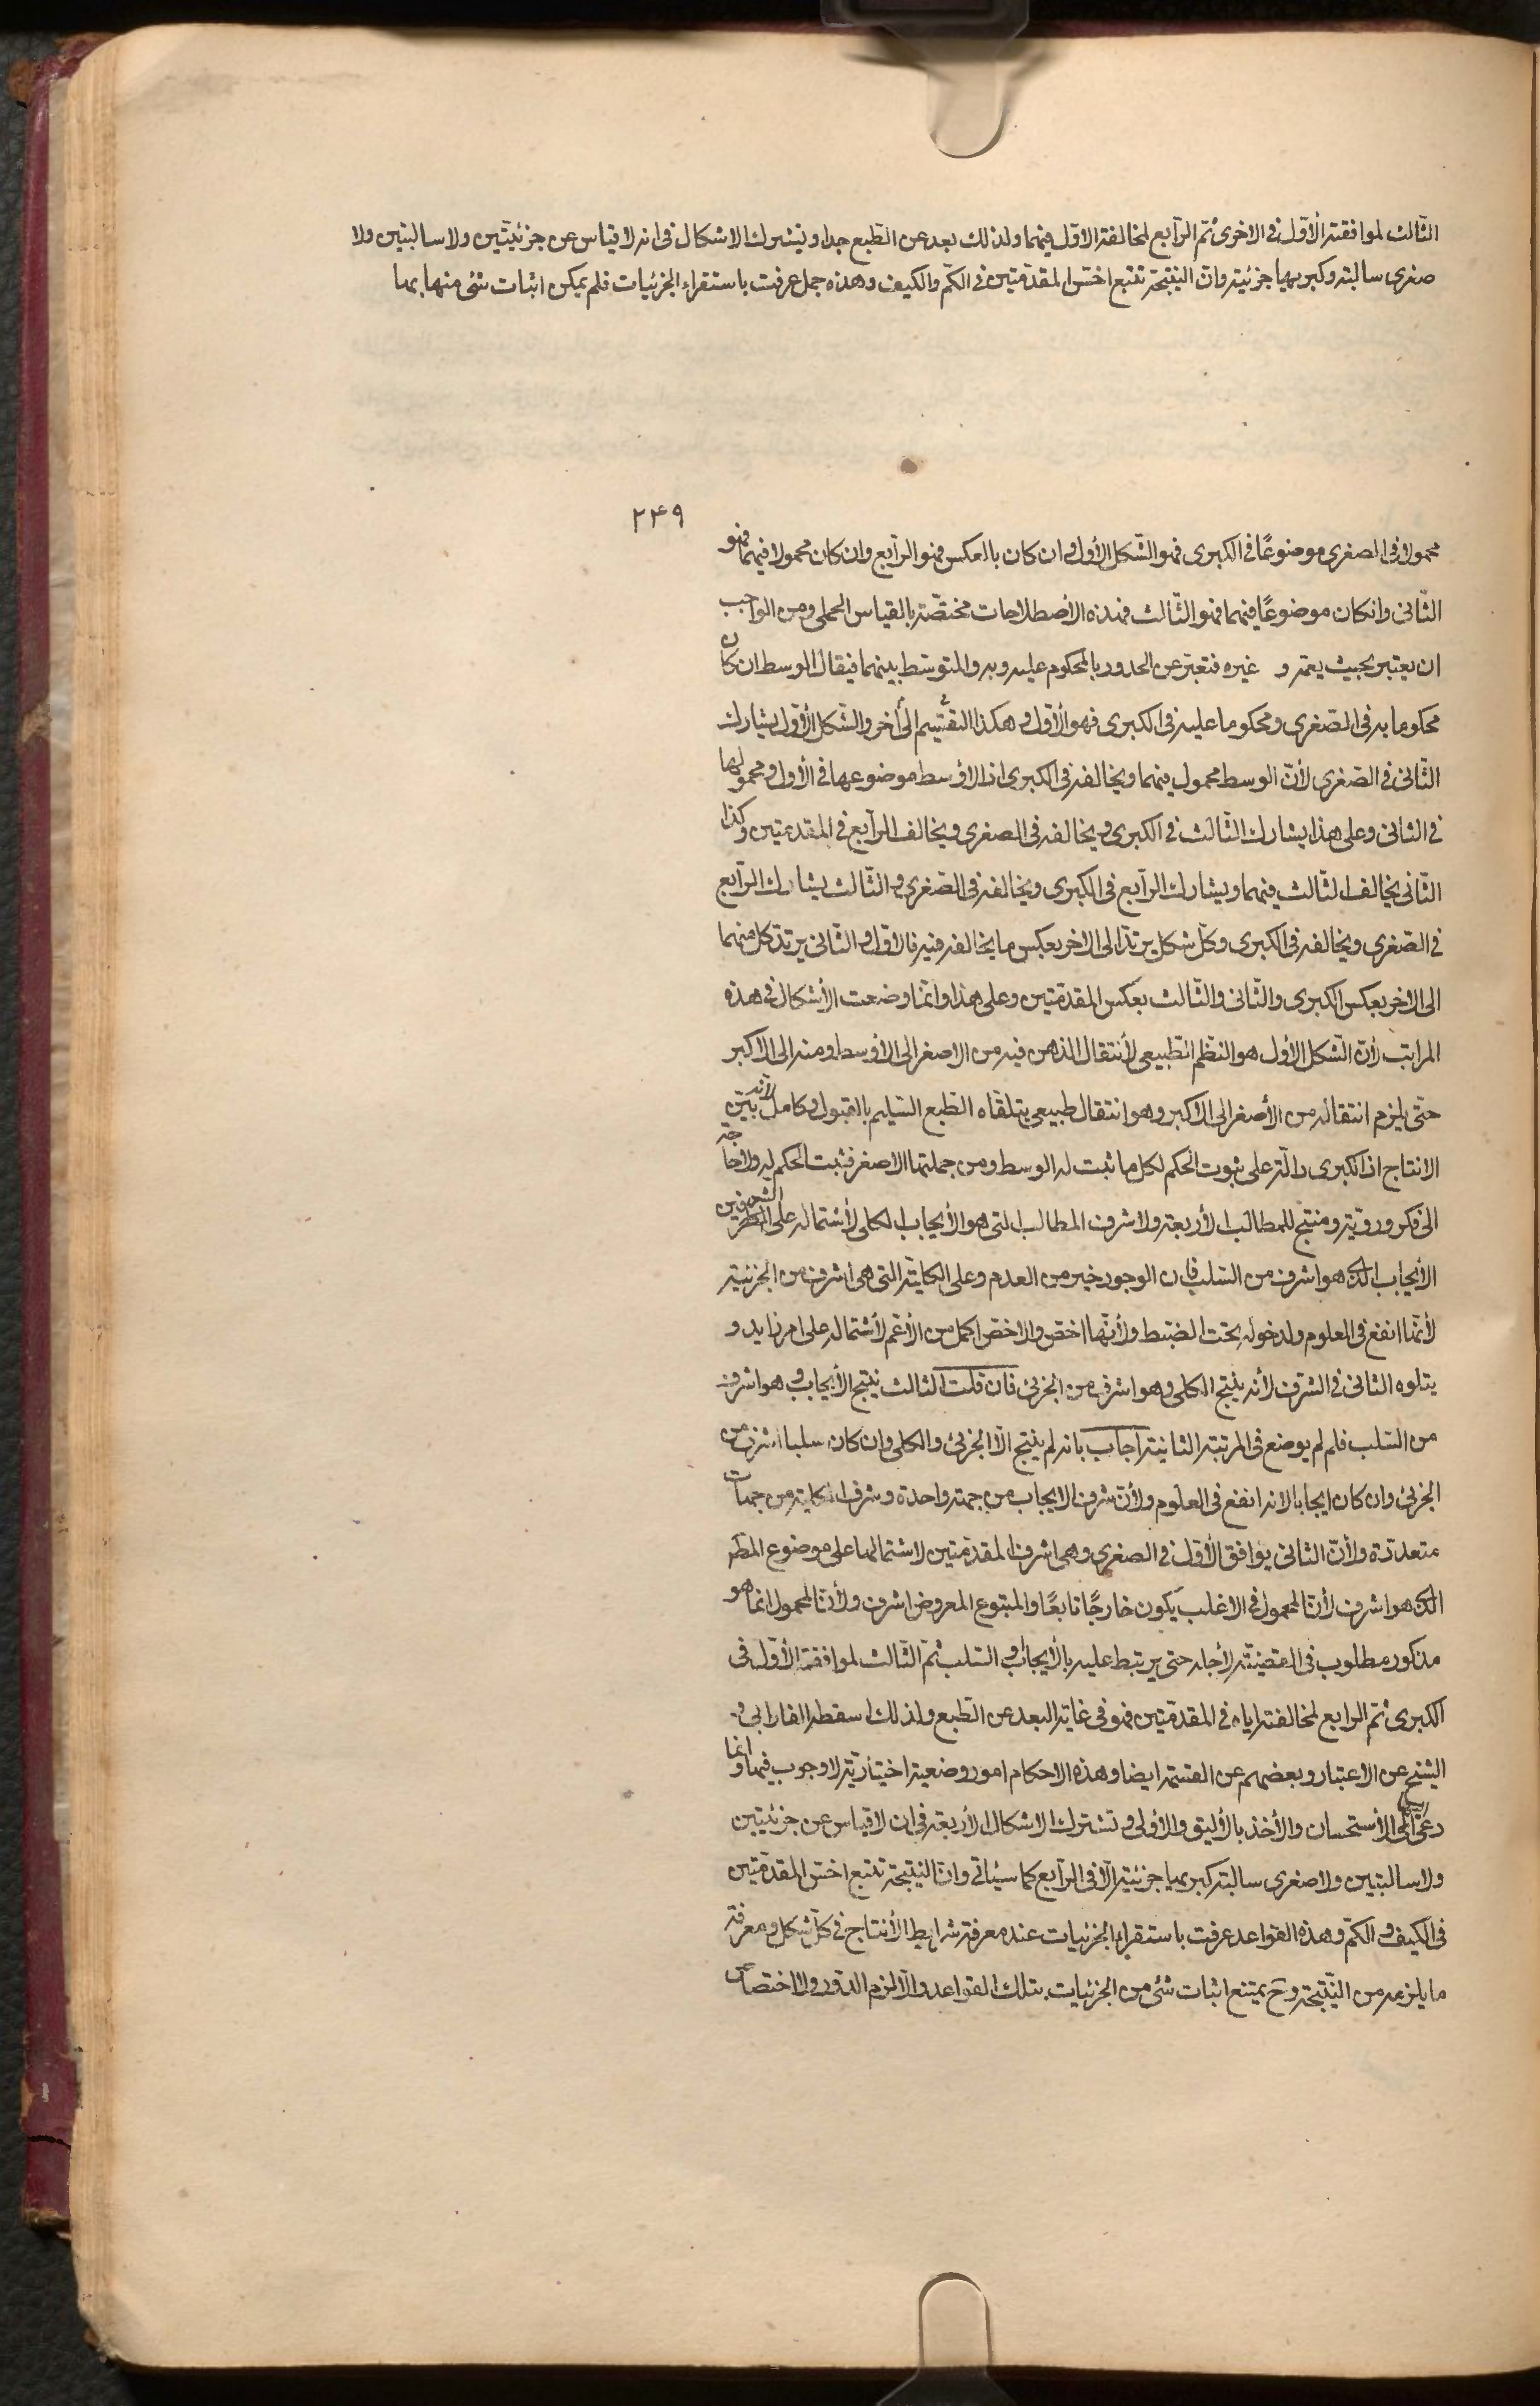 الثّالث لموافقته الأوّل فى الاخرى ثمّ الرّابع لمخالفته الاوّل فيهما ولذلك بعد عن الطّبع جدا و يشترك الاشكال فى انه لا قياس عن جزئيّتين ولا سالبتين ولا
صغرى سالبته وكبريها جزئيته وانّ النتيجة تتبع اخسّ المقدّمتين فى الكمّ والكيف وهذه جمل عرفت باستقراء الجزئيات فلم يمكن اثبات شئ منها بها
۲۴۹
محمولا فى الصغرى موضوعًا فى الكبرى فهو الشّكل الأول وان كان بالعكس فهو الرّابع وان كان محمولا فيهما فهو
الثّانى وانكان موضوعًا فيهما فهو الثّالث فهذه الأصطلاحات مختصّة بالقياس الحملى ومن الواجب
ان يعتبر بحيث يعمه و غيره فتعبّر عن الحدود بالمحكوم عليه وبه والمتوسّط بينهما فيقال الوسط ان كان
محكوما به فى الصّغرى ومحكوما عليه فى الكبرى فهو الأوّل وهكذا التقسيم الى أخر والشّكل الأوّل يشارك
الثّانى فى الصّغرى لأنّ الوسط محمول فيهما ويخالفه فى الكبرى اذ الاوسط موضوعها فى الأوّل ومحمولها
فى الثانى وعلى هذا يشارك الثّالث فى الكبرى ويخالفه فى الصغرى ويخالف الرّابع فى المقدمتين وكذا
الثّانى يخالف الثّالث فيهما ويشارك الرّابع فى الكبرى ويخالفه فى الصّغرى والثّالث يشارك الرّابع
فى الصّغرى ويخالفه فى الكبرى وكلّ شكل يرتدّ الى الاخر بعكس ما يخالفه فيه فالاوّل والثّانى يرتدّ كل منهما
الى الاخر بعكس الكبرى والثّانى والثّالث بعكس المقدّمتين وعلى هذا وانّما وضعت الأشكال فى هذه
المراتب لأنّ الشّكل الأول هو النّظم الطّبيعى لأنتقال الذهن فيه من الاصغر الى الأوسط ومنه الى الاكبر
حتّى يلزم انتقاله من الأصغر الى الاكبر وهو انتقال طبيعى يتلقاه الطّبع السّليم بالقبول وكامل لأنه بيّن
الانتاج اذ الكبرى دالّة على ثبوت الحكم لكل ما ثبت له الوسط ومن جملتها الاصغر فثبت الحكم له ولا حاجة
الى فكر ورويّة ومنتج للمطالب الأربعة ولاشرف المطالب التى هو الأيجاب الكلى لأشتماله على الشرفين
الأيجاب الذى هو اشرف من السّلب فان الوجود خير من العدم وعلى الكليّة التى هى اشرف من الجزئيّة
لأنّها انفع فى العلوم ولدخوله تحت الضّبط ولأنّها اخصّ والاخصّ اكمل من الأعّم لأشتماله على امر زايد و
يتلوه الثانى فى الشرف لأنه ينتج الكلى وهو اشرف من الجزئ فان قلت الثالث ينتج الأيجاب وهو اشرف
من السّلب فلم لم يوضع فى المرتبة الثانية اجاب بانه لم ينتج الّا الجزئ والكلى وان كان سلبا اشرف من
الجزئ وان كان ايجابا لانه انفع فى العلوم ولأنّ شرف الايجاب من جهة واحدة وشرف الكلية من جهات
متعدّدة ولأنّ الثانى يوافق الأوّل فى الصغرى وهى اشرف المقدّمتين لاشتمالها على موضوع المطّ
الذى هو اشرف لأنّ المحمول فى الاغلب يكون خارجًا تابعًا والمتبوع المعروض اشرف ولأنّ المحمول انّما هو
مذكور مطلوب فى القضيّة لأجله حتى يرتبط عليه بالأيجاب والسّلب ثمّ الثّالث لموافقته الأوّل فى
الكبرى ثمّ الرابع لمخالفته اياه فى المقدمتين فهو فى غاية البعد عن الطّبع ولذلك اسقطه الفارابى و
الشّيخ عن الاعتبار وبعضهم عن القسمة ايضا وهذه الاحكام امور وضعية اختياريّة لا وجوب فيها وانما
دعى اليها الأستحسان والأخذ بالأليق والأولى وتشترك الاشكال الأربعة فى ان لا قياس عن جزئيتين
ولا سالبتين ولا صغرى سالبة كبريها جزئية الّا فى الرّابع كما سيأتى وانّ النتيجة تتبع اخسّ المقدّمتين
فى الكيف والكمّ وهذه القواعد عرفت باستقراء الجزئيات عند معرفة شرايط الأنتاج فى كلّ شكل ومعرفة
ما يلزمه من النّتيجة وح يمتنع اثبات شئ من الجزئيات بتلك القواعد والّا لزم الدّور ولا اختصاص